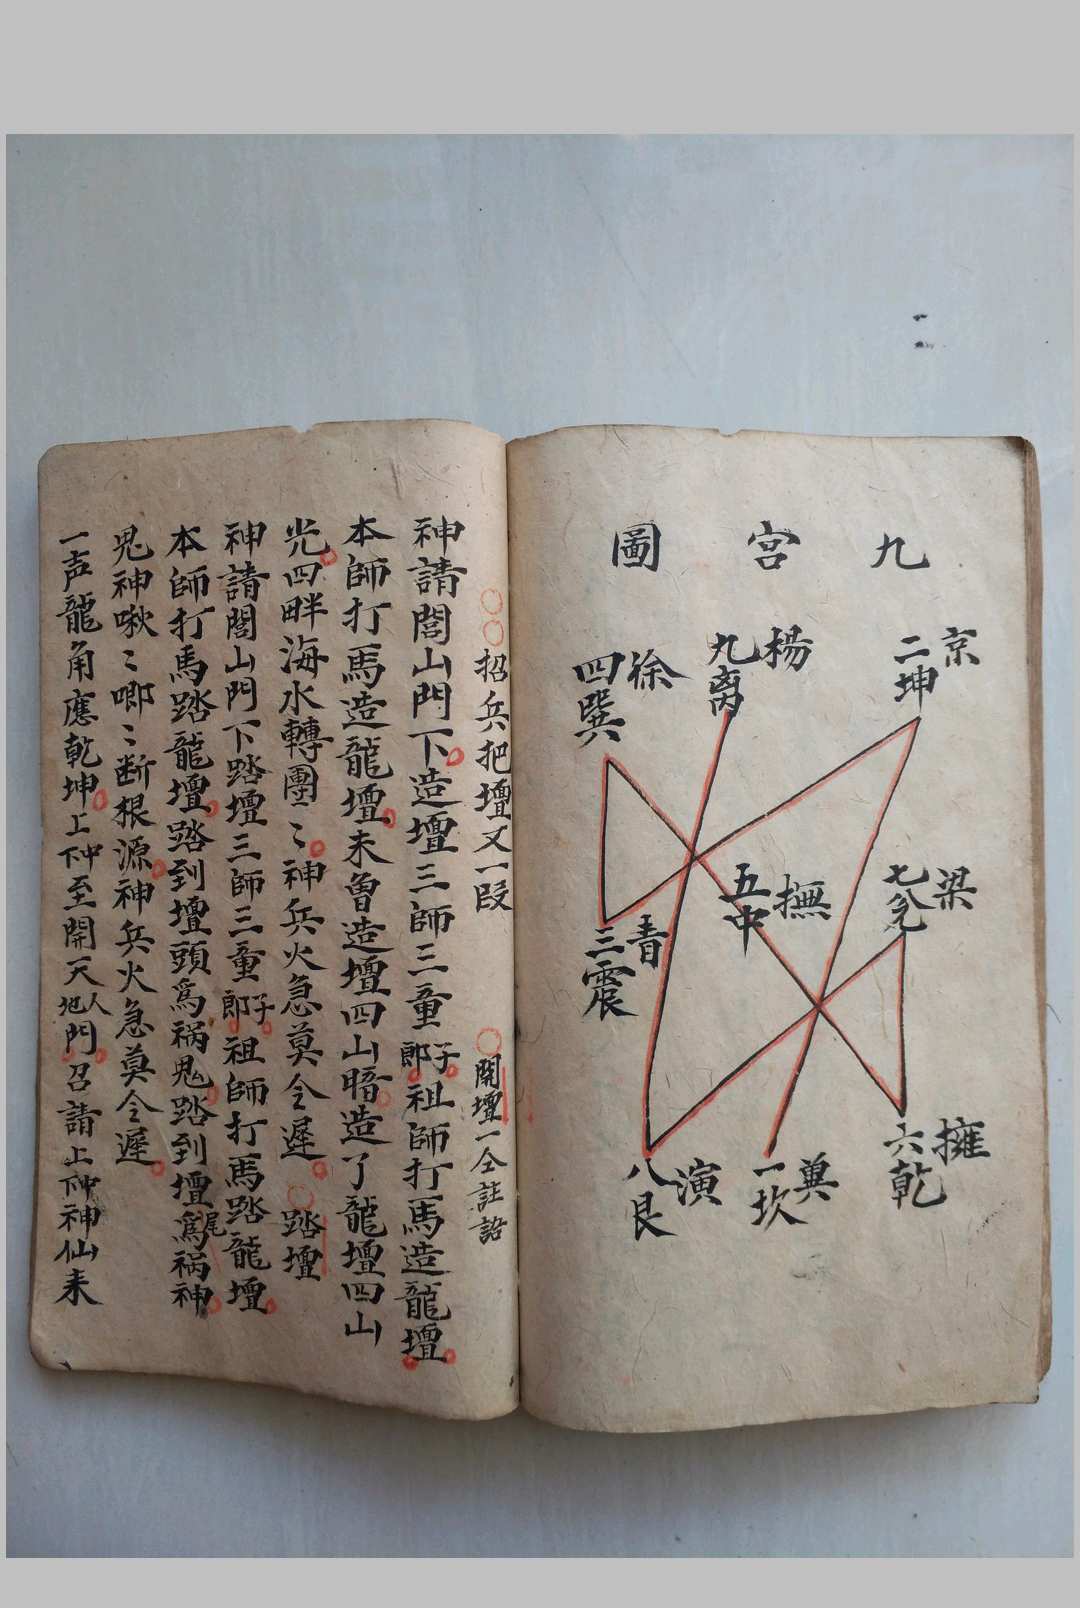 九宮圖
京
二坤
楊
九离
徐
四巽
梁
七兊
撫
五中
青
三震
擁
六乾
兾
一坎
演
八艮
招兵把壇又一段 開壇一仝註語
神請閭山門下造壇三師三童郎子祖師打馬造龍壇
本師打馬造龍壇未曽造壇四山暗造了龍壇四山
光四畔海水轉團〻神兵火急莫令遲 踏壇
神請閭山門下踏壇三師三童郎子祖師打馬踏龍壇
本師打馬踏龍壇踏到壇頭爲禍鬼踏到壇尾爲禍神
鬼神啾〻唧〻断根源神兵火急莫令遲
一声龍角應乾坤上下中至開天地人門召請上中下神仙来